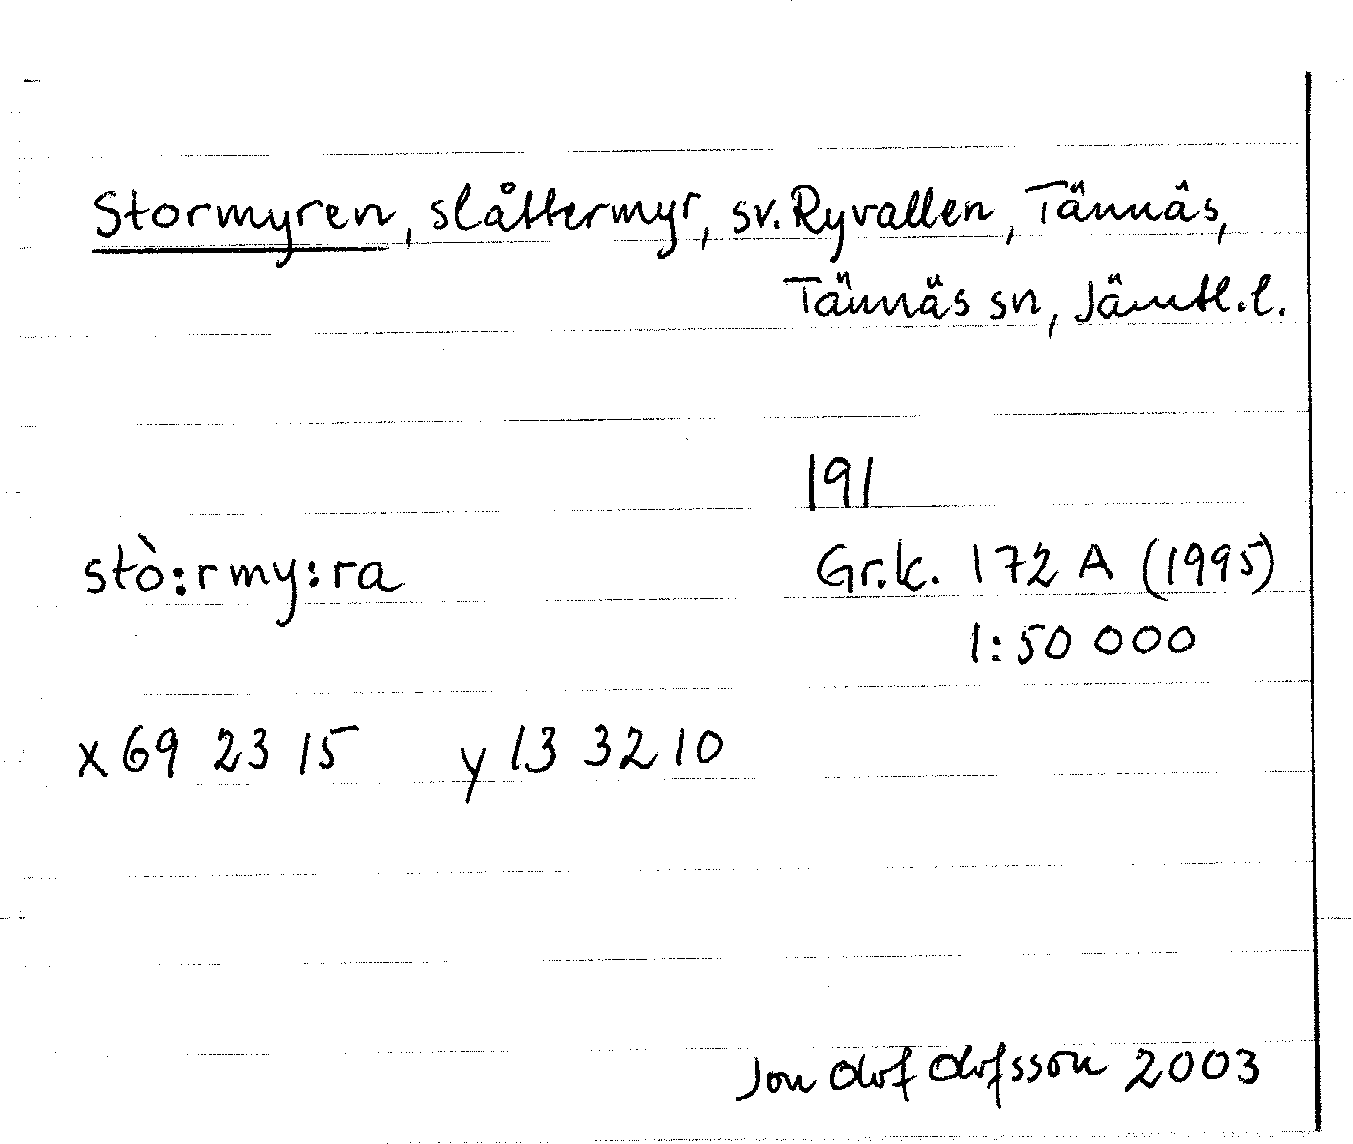 Stormyren, slåttermyr, sv. Ryvallen, Tännäs,
Tännäs sn, Jämtl.l.
191
stò:rmy:ra Gr.k. 172 A (1995)
1:50 000
x 69 23 15 y 13 32 10
Jon Olof Olofsson 2003